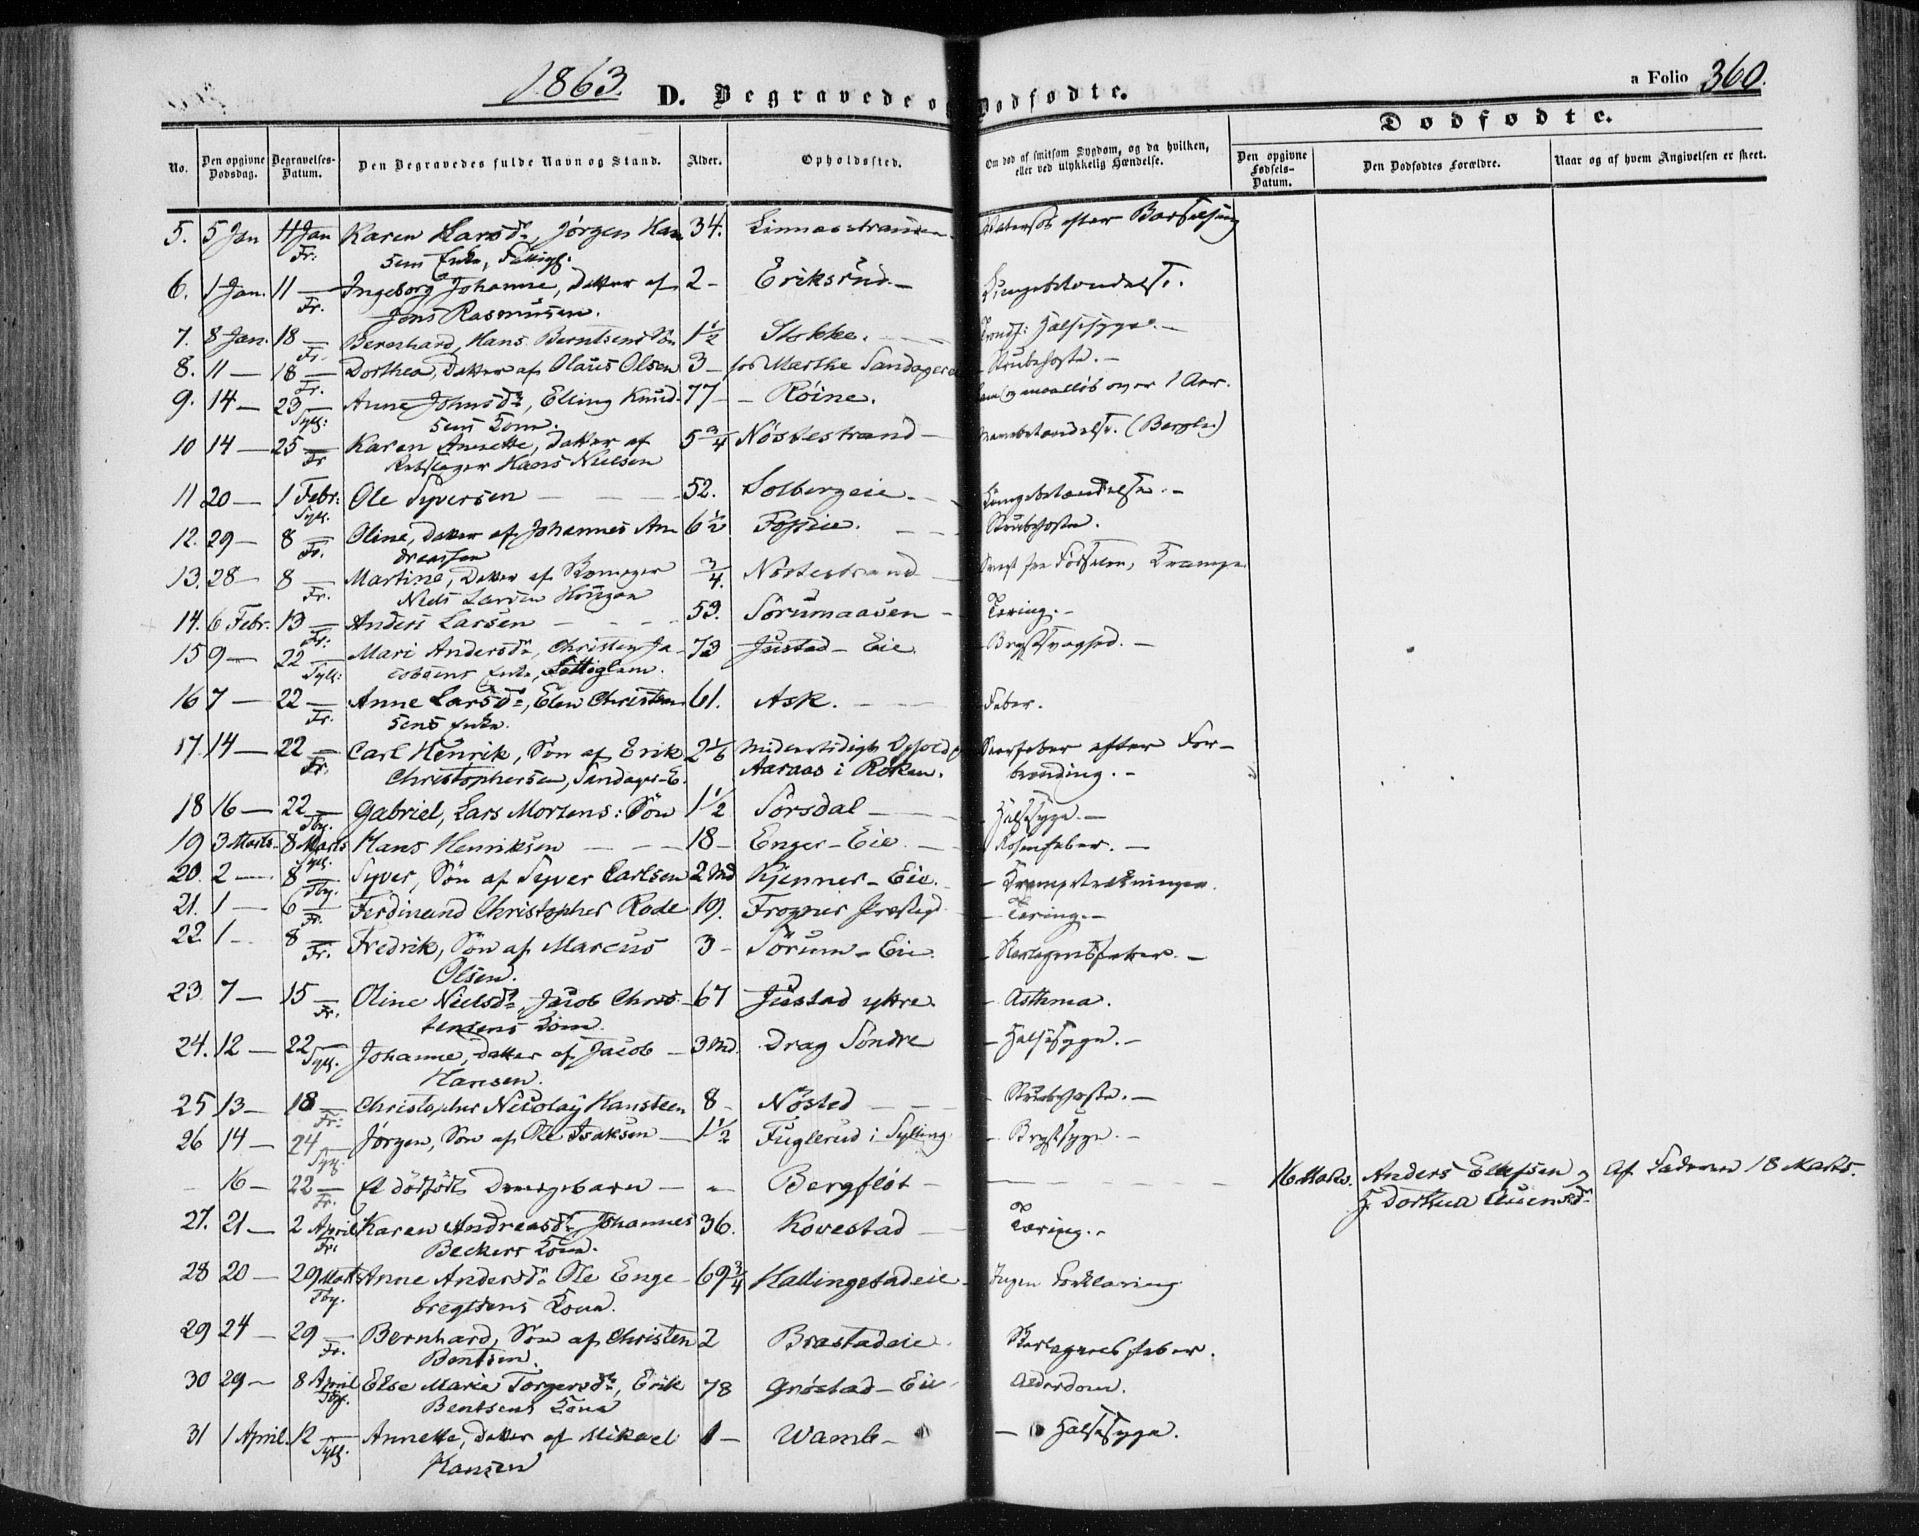 1863.
D. Begravede og Dødfødte.
a Folio 360.
Dødfødte.
No. Den opgivne Dødsdag. Begravelses-Datum. Den Begravedes fulde Navn og Stand. Alder. Opholdssted. Om død af smitsom Sygdom, og da hvilken, eller ved ulykkelig Hændelse. Den opgivne Fødsels-Datum. Den Dødfødtes Forældre. Naar og af hvem Angivelsen er skeet.
5. 5 Jan 11 Jan Karen Larsdr, Jørgen Han 34. Linnesstranden efter Barselseng
Fr: sens Enke, Fattigl.
6. 1 Jan. 11 — Ingeborg Johanne, Datter af 2 – Eriksrud – Lungebetændelse.
Fr. Jens Rasmusen.
7. 8 Jan. 18 — Bernhard, Hans Berntsens Søn 1½ Stokke. Halssyge. –
Fr.
8. 11 — 18 — Dorthea, Datter af Olaus Olsen 3 – hos Marthe Sandager – Strubehoste. –
Fr.
9. 14 — 23 — Anne Johnsdr, Elling Knud- 77 – – Røine. og maalløs over 1 Aar.
Syll: sens Kone.
10 14 — 25 — Karen Annette, Datter af 5¾ Nøstestrand – (Bergh.)
Fr Rebslager Hans Nielsen
11 20 — 1 Febr: Ole Syversen — 52. Solbergeie – Lungebetændelse. –
Syll.
12. 29 — 8 — Oline, Datter af Johannes An 6½ Foseie. Strubehoste.
Fr. dreassen
13. 28 — 8 — Martine, Datter af Skomager ¾. Nøstestrand – Svag fra Fødselen, Krampe
Fr. Niels Larsen Hougan
14. 6 Febr. 13 — Anders Larsen — 53. Sørumaasen – Tæring. –
Fr:
15 9 — 22 — Mari Andersdr, Christen Ja- 73 Justad – Eie – Brystsvaghed. –
Syll: cobsens Enke, Fattiglem.
16 7 — 22 — Anne Larsdr, Elen Christen 61. Ask. – Feber.
Fr. sens Enke.
17. 14 — 22 — Carl Henrik, Søn af Erik 2⅙ Midlertidigt Ophold p Saarfeber efter For-
Fr. Christophersen, Sandager-E. Aaraas i Røken. brænding. –
18 16 — 22 — Gabriel, Lars Mortens: Søn 1½ Sørsdal — – Halssyge. –
Tby.
19 3 Marts 8 Marts Hans Henriksen — 18 – Enger – Eie. – Rosenfeber. –
Syll.
20. 2 — 8 — Syver, Søn af Syver Carlsen 2 Md Kjenner – Eie. – Krampetrækninger.
Tby.
21. 1 — 6 — Ferdinand Christopher Rode 19. Frogner Præstegd – Tæring. –
Fr.
22 1 – 8 — Fredrik, Søn af Marcus 3 – Sørum – Eie. – Skarlagensfeber. –
Fr. Olsen.
23. 7 — 15 — Oline Nielsdr, Jacob Chris- 67 Justad yttre – Asthma.
Fr. tensens Kone.
24. 12 — 22 — Johanne, Datter af Jacob – 3 Md. Drag Søndre – Halssyge. –
Syll. Hansen.
25 13 — 18 — Christopher Nicolay Hansteen 8 – Nøsted — – Strubehoste. –
Fr:
26 14 — 24 — Jørgen, Søn af Ole Isaksen – 1½ Fuglerud i Sylling. – Brystsyge. –
Syll.
– 16 – 22 — Et dødfødt Drengebarn – – Bergfløt – 16 Marts. Anders Ellefsen og Af Faderen 18 Marts.
Fr. H. Dorthea
27. 21 — 2 April Karen Andreasdr Johannes 36. Kovestad — Tæring. –
Fr: Beckers Kone.
28 20 — 29 Marts Anne Andersdr Ole Enge- 69¾ Hallingstadeie – Ingen Forklaring
Tby. bregtsens Kone.
29 24 — 29 — Bernhard, Søn af Christen 2 Brastadeie. Skarlagensfeber.
Fr. Bentsen.
30 29 — 8 April Else Marie Torgersdr, Erik 78 Grøstad – Eie – Alderdom.
Tby. Bentsens Kone
31 1 April. 12 — Annette, Datter af Mikael 1 – Wamb – – Halssyge.
Syll. Hansen